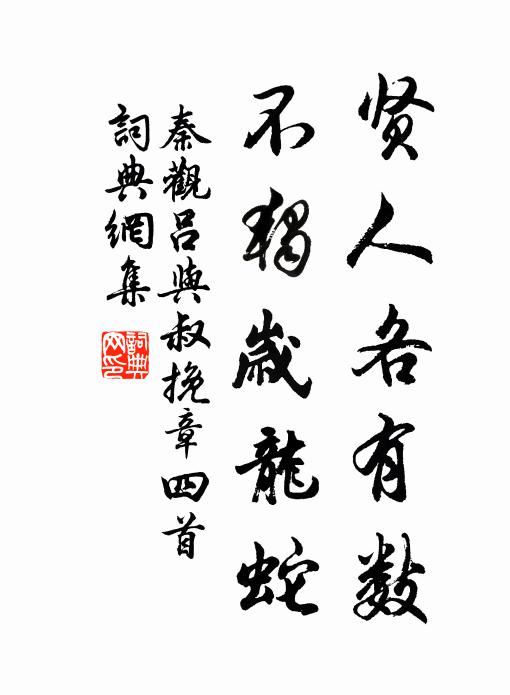 贤人各有数
不独岁龙蛇
秦觀呂與叔挽章四首
詞典網集
詞典網印